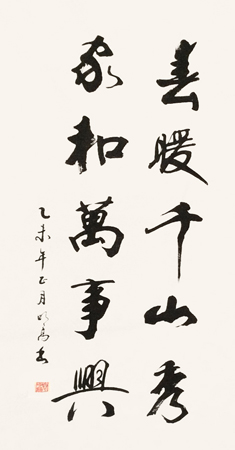 春暖千山秀
家和萬事興
乙未年正月